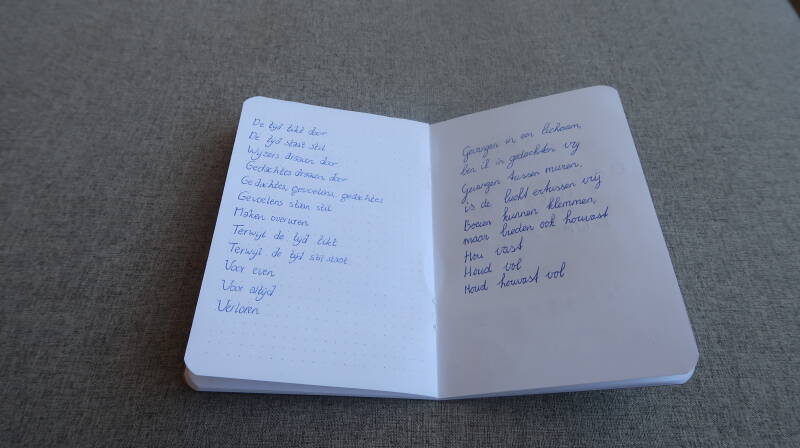 De tijd tikt door
De tijd staat stil
Wijzers draaien door
Gedachtes draaien door
Gedachtes, gevoelens, gedachtes
Gevoelens staan stil
Maken overuren
Terwijl de tijd tikt
Terwijl de tijd stil staat
Voor even
Voor altijd
Verloren
Gevangen in een lichaam,
ben ik in gedachten vrij
Gevangen tussen muren,
is de lucht ertussen vrij
Boeien kunnen klemmen,
maar bieden ook houvast
Hou vast
Houd vol
Houd houvast vol